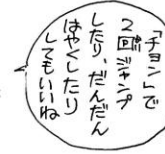 「チョン」で
2回ジャンプ
したり、だんだん
はやくしたり
してもいいね